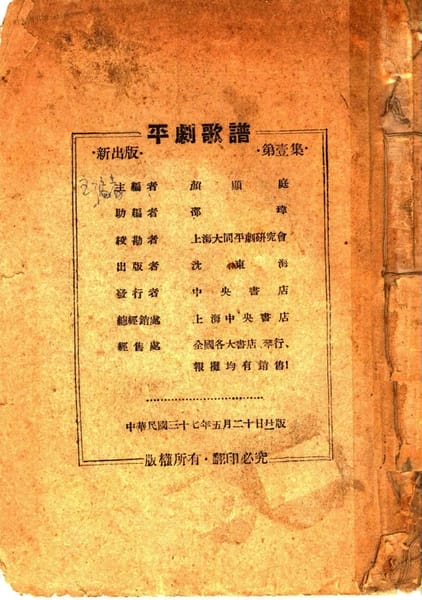 平劇歌譜
·新出版· ·第壹集·
主編者 顏顯庭
助編者 鄒瑋
校勘者 上海大同平劇研究會
出版者 沈東海
發行者 中央書店
總經銷處 上海中央書店
經售處 全國各大書店、琴行、
報攤均有銷售!
中華民國三十七年五月二十日出版
版權所有·翻印必究